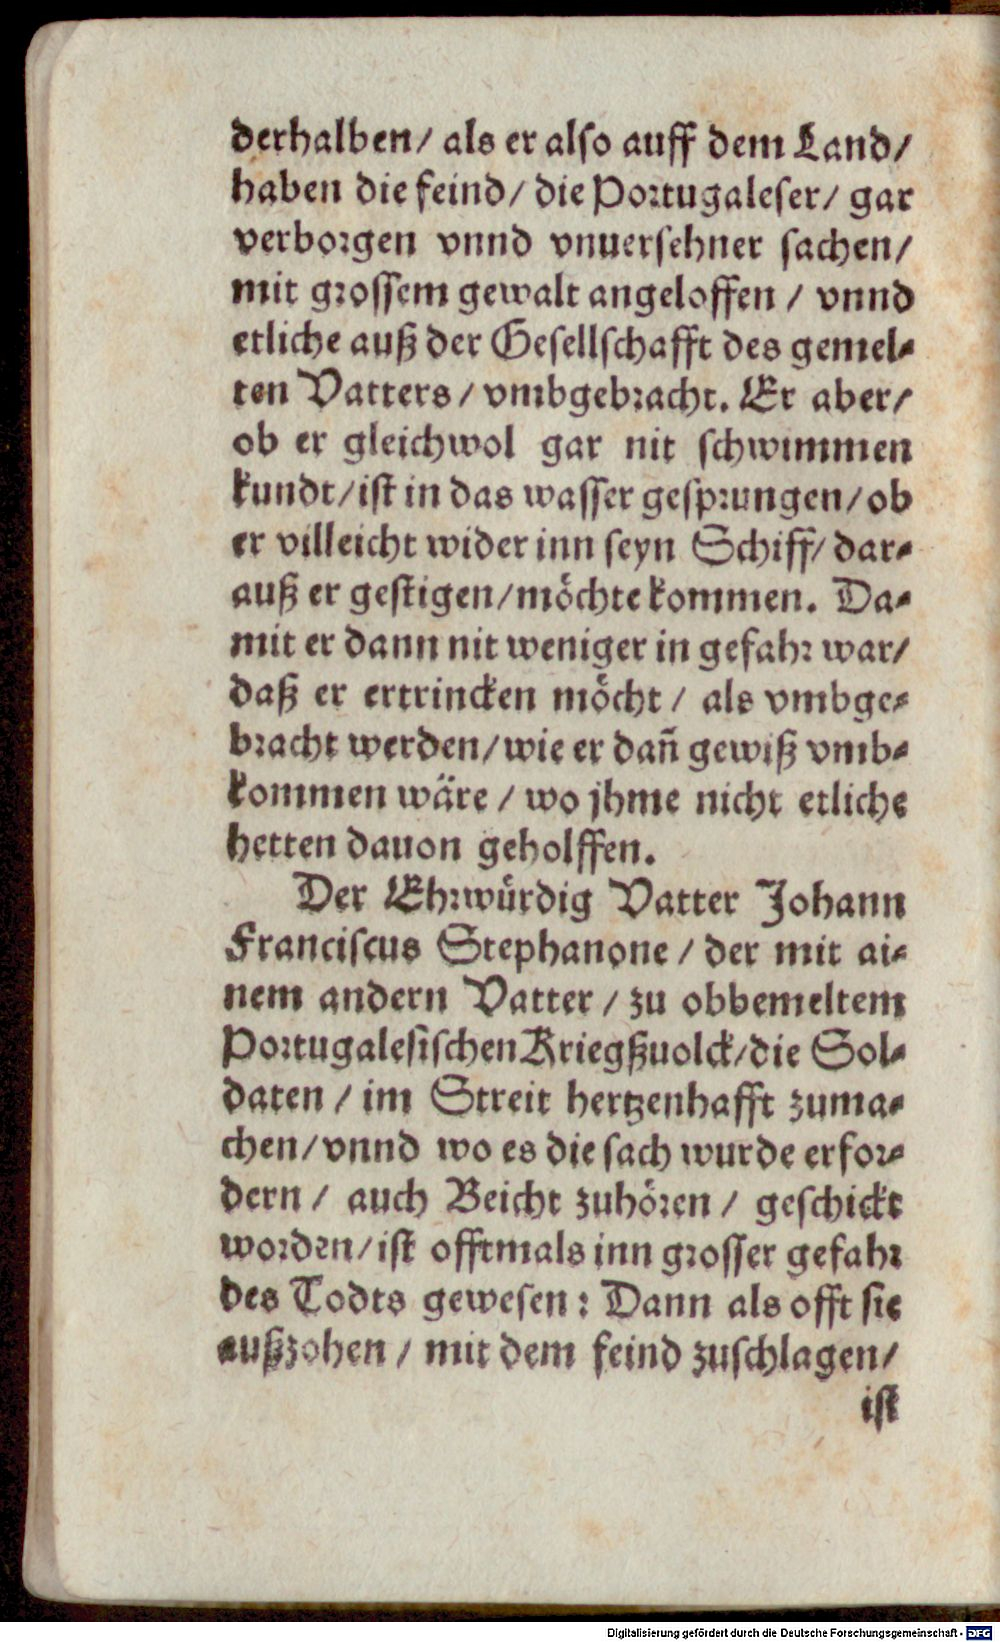 derhalben/ als er also auff dem Land/
haben die feind/ die Portugaleser/ gar
verborgen vnnd vnuersehner sachen/
mit grossem gewalt angeloffen / vnnd
etliche auß der Gesellschafft des gemel-
ten Vatters/ vmbgebracht. Er aber/
ob er gleichwol gar nit schwimmen
kundt/ist in das wasser gesprungen/ob
er villeicht wider inn seyn Schiff/ dar-
auß er gestigen/möchte kommen. Da-
mit er dann nit weniger in gefahr war/
daß er ertrincken möcht / als vmbge-
bracht werden/wie er dañ gewiß vmb-
kommen wäre / wo jhme nicht etliche
hetten dauon geholffen.
Der Ehrwürdig Vatter Johann
Franciscus Stephanone / der mit ai-
nem andern Vatter / zu obbemeltem
Portugalesischen Kriegßuolck/die Sol-
daten / im Streit hertzenhafft zuma-
chen/vnnd wo es die sach wurde erfor-
dern / auch Beicht zuhören / geschickt
worden/ist offtmals inn grosser gefahr
des Todts gewesen: Dann als offt sie
außzohen / mit dem feind zuschlagen/
ist
Digitalisierung gefördert durch die Deutsche Forschungsgemeinschaft - DFG